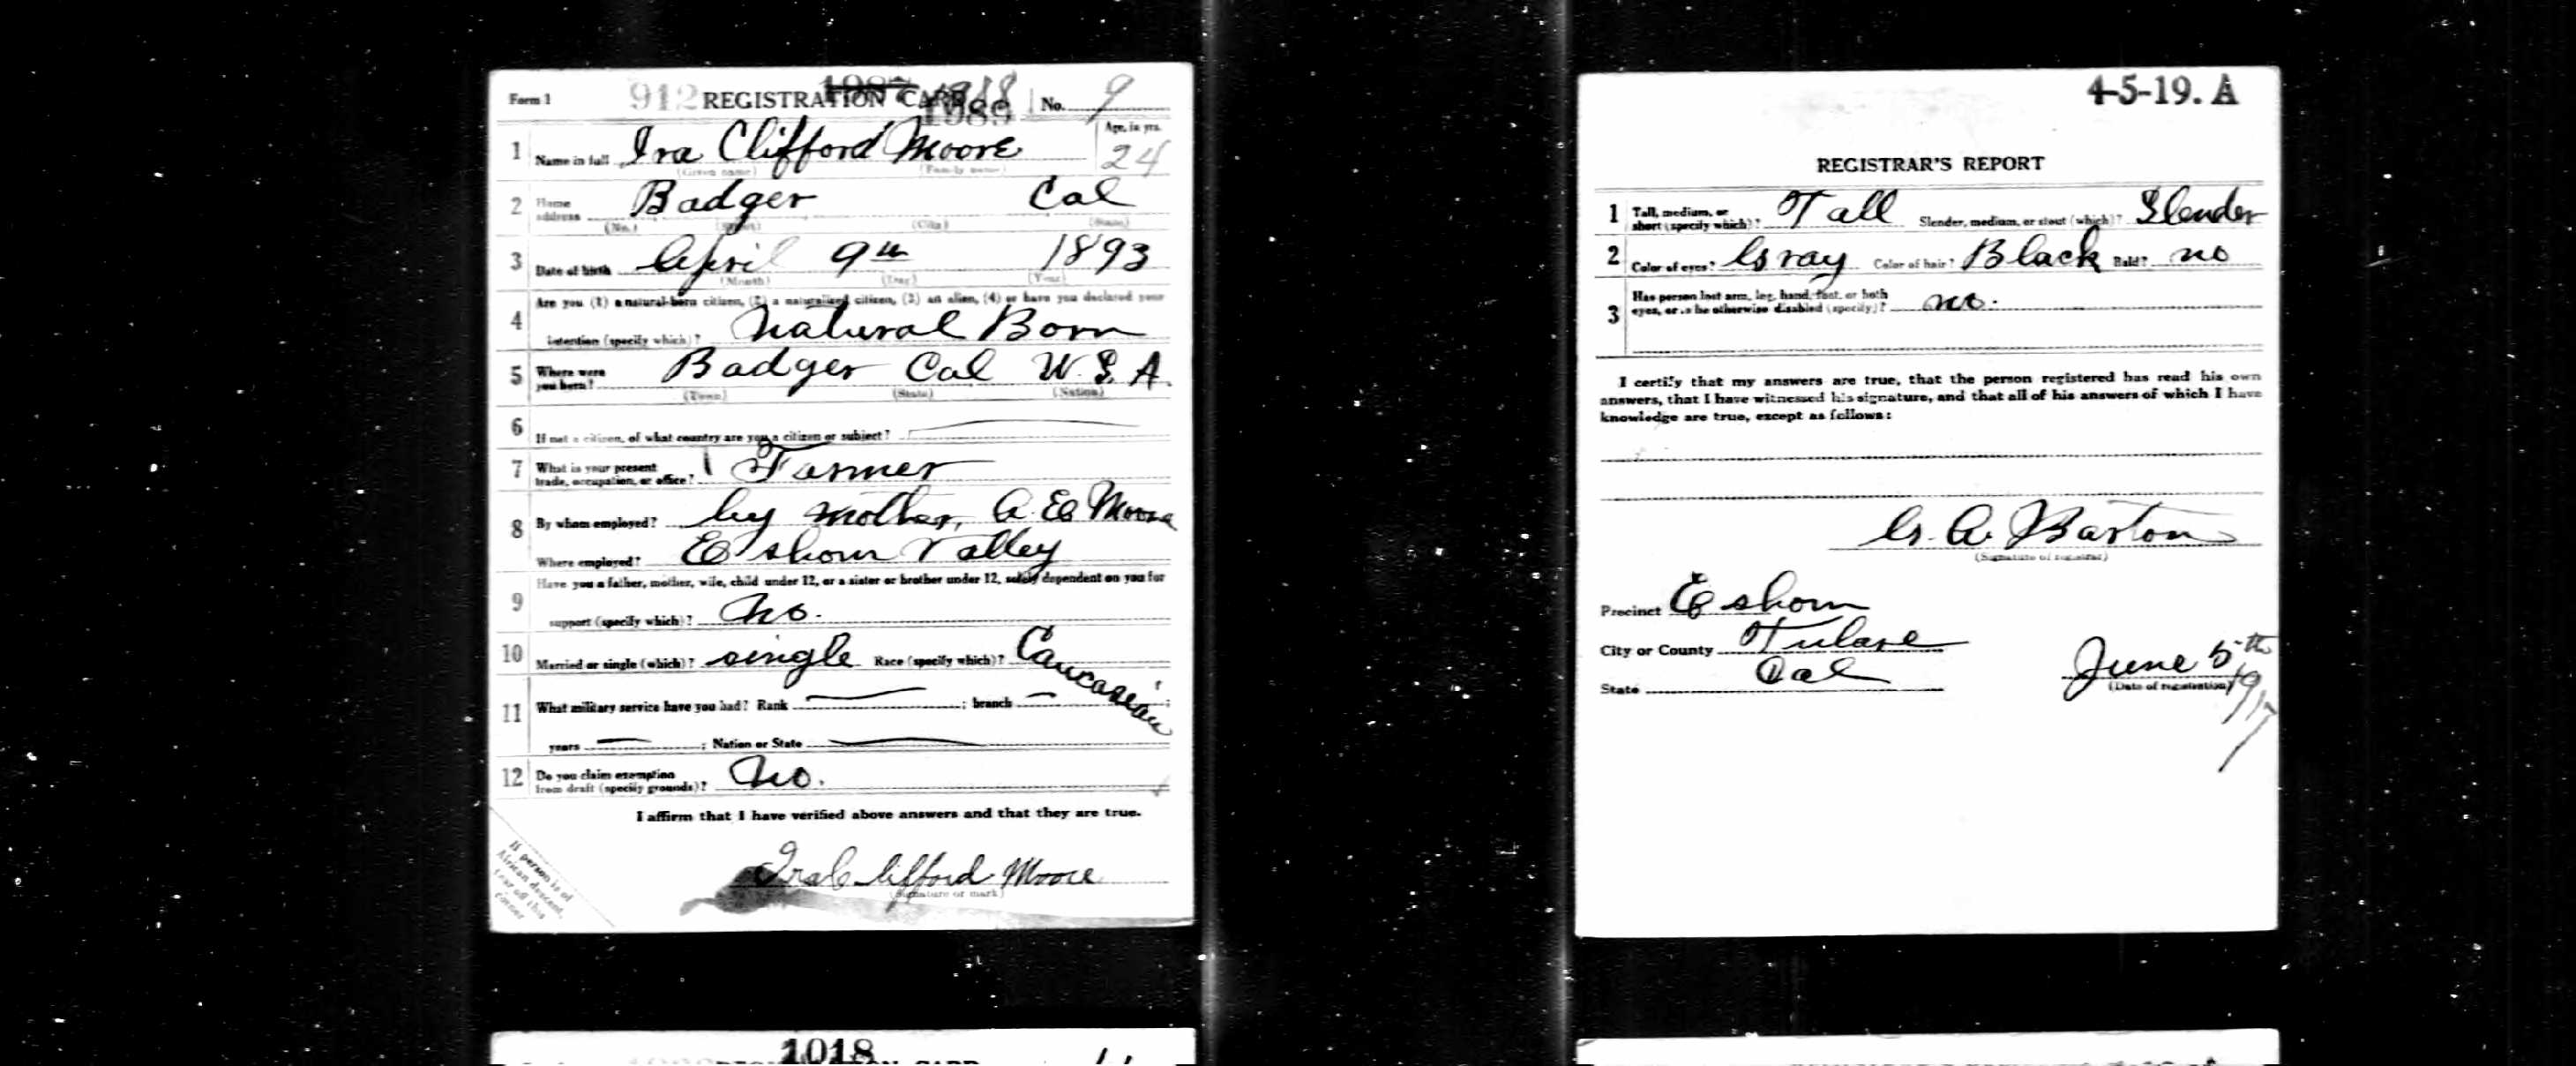 Form 1 912 REGISTRATION CARD No. 9
1989
1 Name in full Ira Clifford Moore Age, in yrs. 24
(Given name) (Family name)
2 Home address Badger Cal
(No.) (Street) (City) (State)
3 Date of birth April 9th 1893
(Month) (Day) (Year)
Are you (1) a natural-born citizen, (2) a naturalized citizen, (3) an alien, (4) or have you declared your
4 intention (specify which)? Natural Born
5 Where were you born? Badger Cal U.S.A.
(Town) (State) (Nation)
6 If not a citizen, of what country are you a citizen or subject?
7 What is your present trade, occupation, or office? Farmer
8 By whom employed? by mother, A. E. Moore
Where employed? Eshom Valley
Have you a father, mother, wife, child under 12, or a sister or brother under 12, solely dependent on you for
9 support (specify which)? No.
10 Married or single (which)? single Race (specify which)? Caucasian
11 What military service have you had? Rank ; branch ;
years ; Nation or State
12 Do you claim exemption from draft (specify grounds)? No.
I affirm that I have verified above answers and that they are true.
Ira Clifford Moore
(Signature or mark)
If person is of
African descent,
tear off this
corner
4-5-19. A
REGISTRAR'S REPORT
1 Tall, medium, or short (specify which)? Tall Slender, medium, or stout (which)? Slender
2 Color of eyes? Gray Color of hair? Black Bald? no
3 Has person lost arm, leg, hand, foot, or both eyes, or is he otherwise disabled (specify)? no.
I certify that my answers are true, that the person registered has read his own
answers, that I have witnessed his signature, and that all of his answers of which I have
knowledge are true, except as follows:
G. A. Barton
(Signature of registrar)
Precinct Eshom
City or County Tulare
State Cal June 5th 1917
(Date of registration)
1018